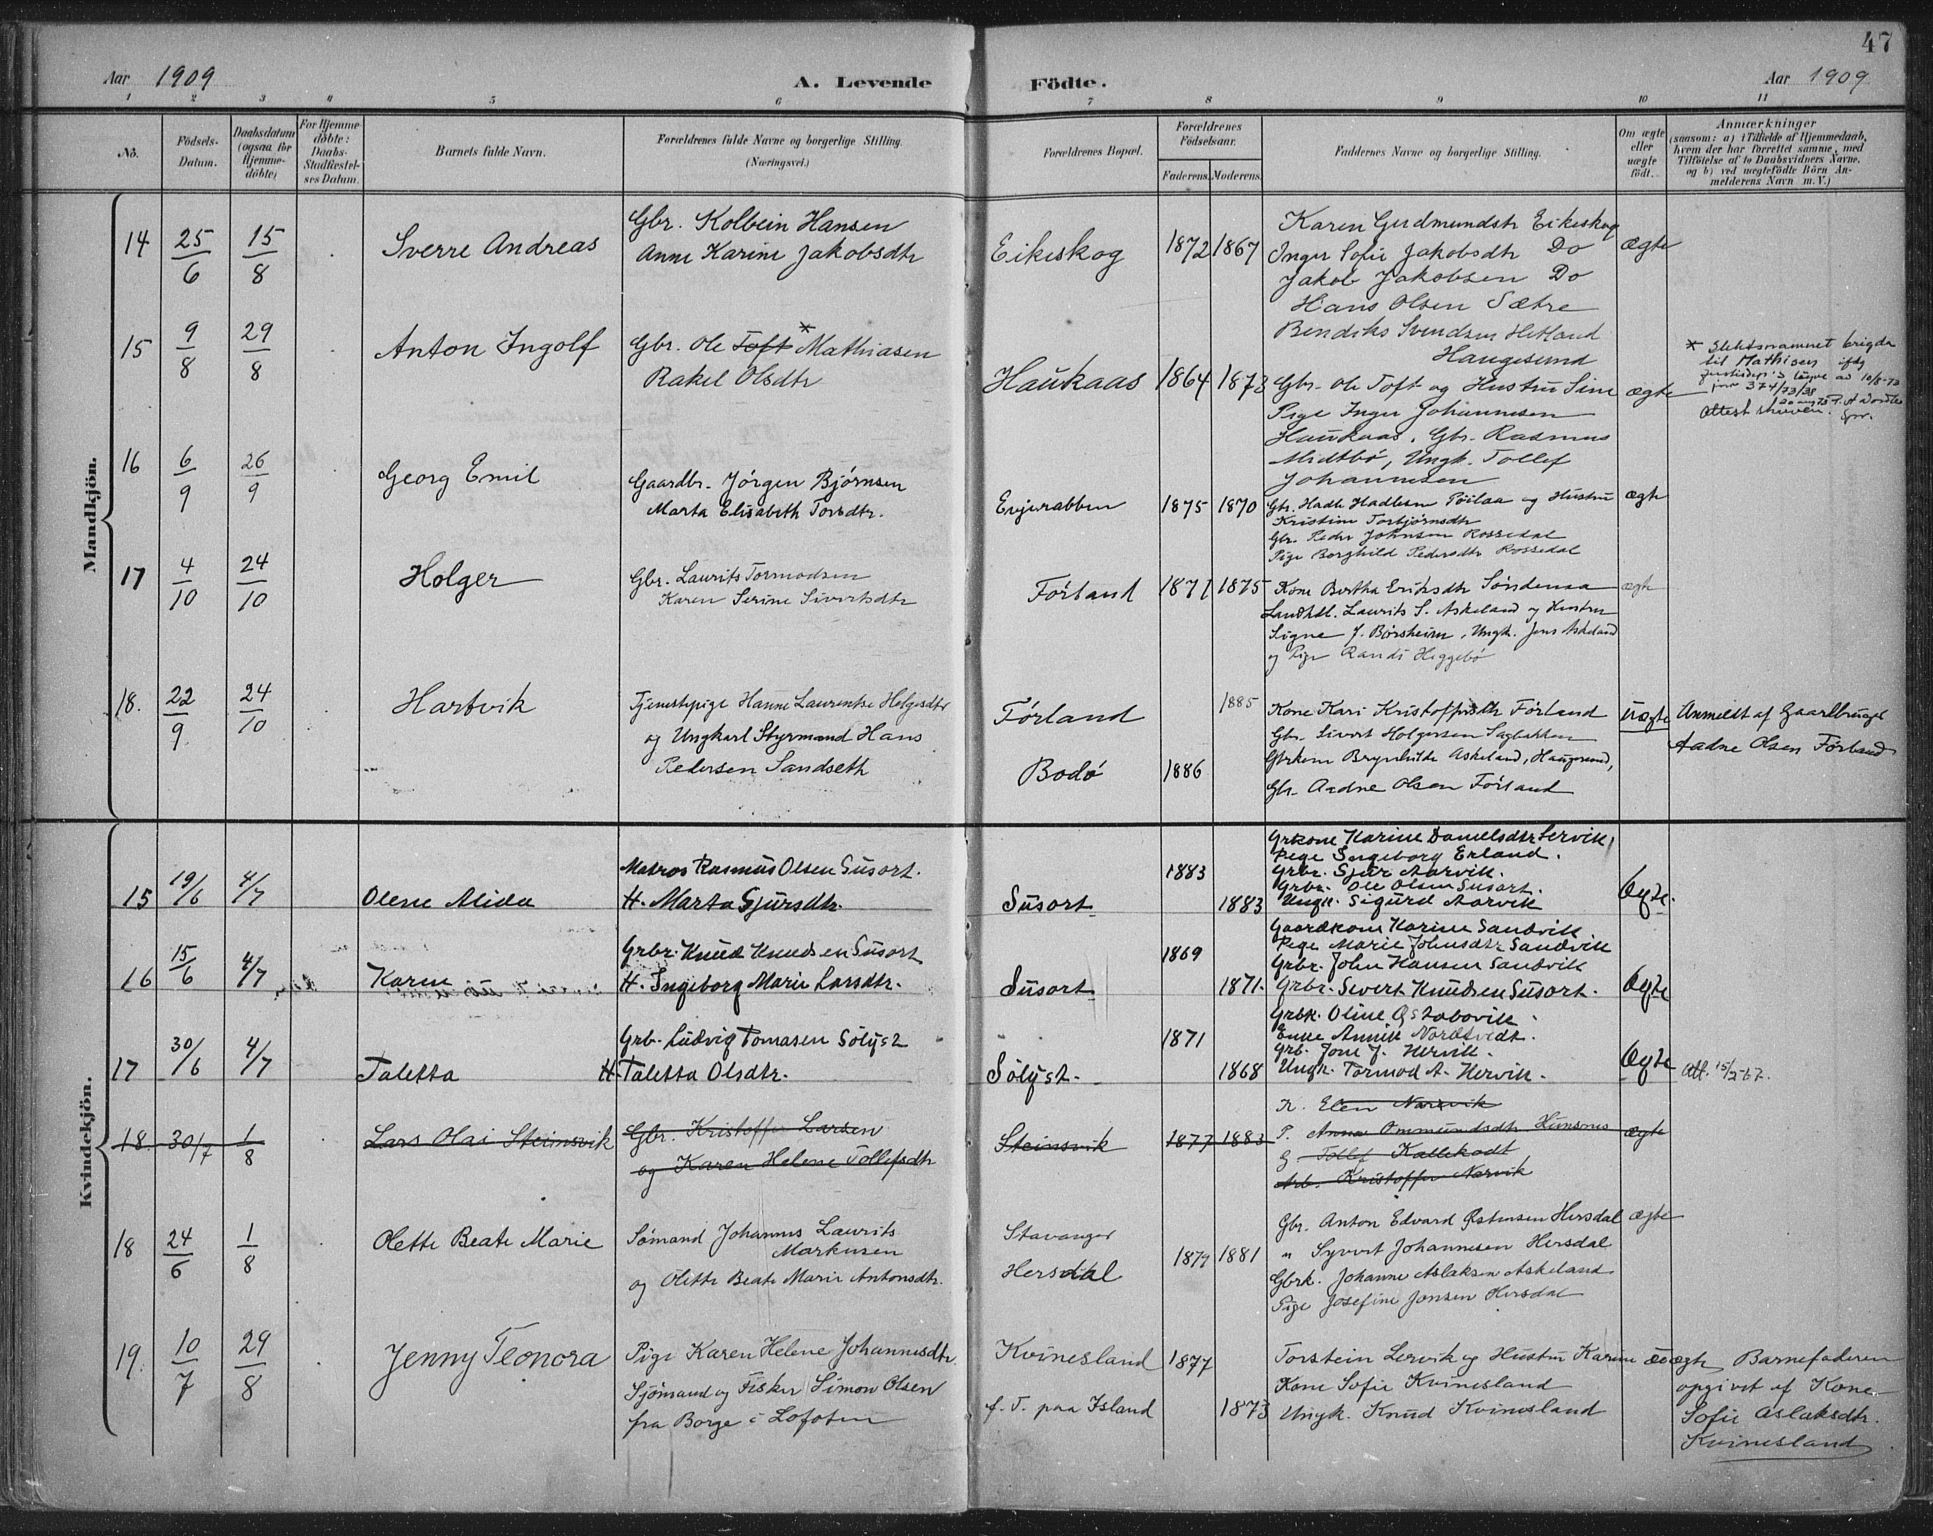 47
Aar 1909
A. Levende
Födte.
Aar 1909
1 2 3 4 5 6 7 8 9 10 11
No.
Födsels-Datum.
Daabsdatum (ogsaa for Hjemme-döbte)
For Hjemme-döbte: Daabs-Stadfæstel-ses Datum.
Barnets fulde Navn.
Forældrenes fulde Navne og borgerlige Stilling. (Næringsvei.)
Forældrenes Bopæl.
Forældrenes Födselsaar.
Faderens. Moderens.
Faddernes Navne og borgerlige Stilling.
Om ægte eller uægte födt.
Anmærkninger
(saasom: a) i Tilfælde af Hjemmedaab, hvem der har forrettet samme, med Tilföielse af to Daabsvidners Navne, og b) ved uægtefödte Börn An-melderens Navn m. V.)
Mandkjön.
14 25/6 15/8 Sverre Andreas
Gbr. Kolbein Hansen
Anne Karine Jakobsdtr
Eikeskog 1872 1867
Karen Gudmundstr Eikeskog
Inger Sofie Jakobsdtr Do
Jakob Jakobsen Do
Hans Olsen Sætre
Bendiks Svendsen Hetland
Haugesund
ægte
15 9/8 29/8 Anton Ingolf
Gbr. Ole Toft * Mathiasen
Rakel Olsdtr
Haukaas 1864 1873
Gbr. Ole Toft og Hustru Sine
Pige Inger Johannesen
Haukaas, Gbr. Rasmus
Midtbö, Ungk. Tollef
Johannesen
ægte
* Slektsnamnet
til Mathisen
av 10/8-73
jnr 374/73/38
Attest skreven.
16 6/9 26/9 Georg Emil
Gaardbr. Jørgen Bjørnsen
Marta Elisabeth Torsdtr.
1875 1870
Kristine Torbjørnsdtr
Gbr. Peder Johnsen Rossedal
Pige Borghild Pedersdtr Rossedal
ægte
17 4/10 24/10 Holger
Gbr. Laurits Tormodsen
Karen Serine Sivertsdtr
Førland 1871 1875
Kone Bertha Eriksdtr
Landhdl. Laurits S. Askeland og Hustru
Signe J. Børsheim, Ungk. Jens Askeland
og Pige Randi Heggebø
ægte
18. 22/9 24/10 Hartvik
Tjenestepige Hanne Laurentse Helgesdtr
og Ungkarl Styrmand Hans
Pedersen Sandseth
Førland 1885
Bodø 1886
Kone Kari Kristoffersdtr Førland
Gbr. Sivert Holgersen Sagbakken
Brynhilde Askeland, Haugesund,
Gbr. Aadne Olsen Førland
Uægte
Anmeldt af Gaardbruger
Aadne Olsen Førland
Kvindekjön.
15 19/6 4/7 Olene Alida
Matros Rasmus Olsen Susort.
H. Marta Sjursdtr.
Susort 1883 1883
Grkone Karine Danielsdtr Lervik,
Pige Ingeborg Erland.
Grbr. Sjur Aarvik.
Grbr. Ole Olsen Susort.
Ungk. Sigurd Aarvik
Ægte.
16 15/6 4/7 Karen
Grbr. Knud Knudsen Susort
H. Ingeborg Marie Larsdtr.
Susort 1869 1871.
Gaardkone Karine Sandvik
Pige Marie Johnsdtr Sandvik
Grbr. John Hansen Sandvik
Grbr. Sivert Knudsen Susort.
Ægte
17 30/6 4/7 Taletta
Grb. Ludvig Tomasen Sölyst
H. Taletta Olsdtr.
Sölyst. 1871 1868
Grbk. Oline
Enke Annik
Grb. Jone J. Hervik.
Ungk. Tormod A. Hervik.
Ægte
Att. 15/2-67.
18. 30/7 1/8 Lars Olai Steinsvik
Gbr. Kristoffer Larsen
og Karen Helene Tollefsdtr
Steinsvik 1877 1883
K. Elen Narvik
P. Anna Ommundsdtr
G Tollef Kallekodt
Arb. Kristoffer Narvik
ægte
18 24/6 1/8 Olette Beate Marie
Sømand Johannes Laurits
Markusen
og Olette Beate Marie Antonsdtr.
Stavanger
Hersdal 1879 1881
Gbr. Anton Edvard Østensen Hersdal
" Syvert Johannesen Hersdal
Gbrk. Johanne Aslaksen Askeland
Pige Josefine Jensen Hersdal
ægte
19. 10/7 29/8 Jenny Leonora
Pige Karen Helene Johannesdtr
Sjømand og Fisker Simon Olsen
fra Borge i Lofoten
Kvinesland 1877
f. T. paa Island 1873
Torstein Lervik og Hustru Karine
Kone Sofie Kvinesland
Ungk. Knud Kvinesland
uægte
Barnefaderen
opgivet af Kone
Sofie Aslaksdtr.
Kvinesland